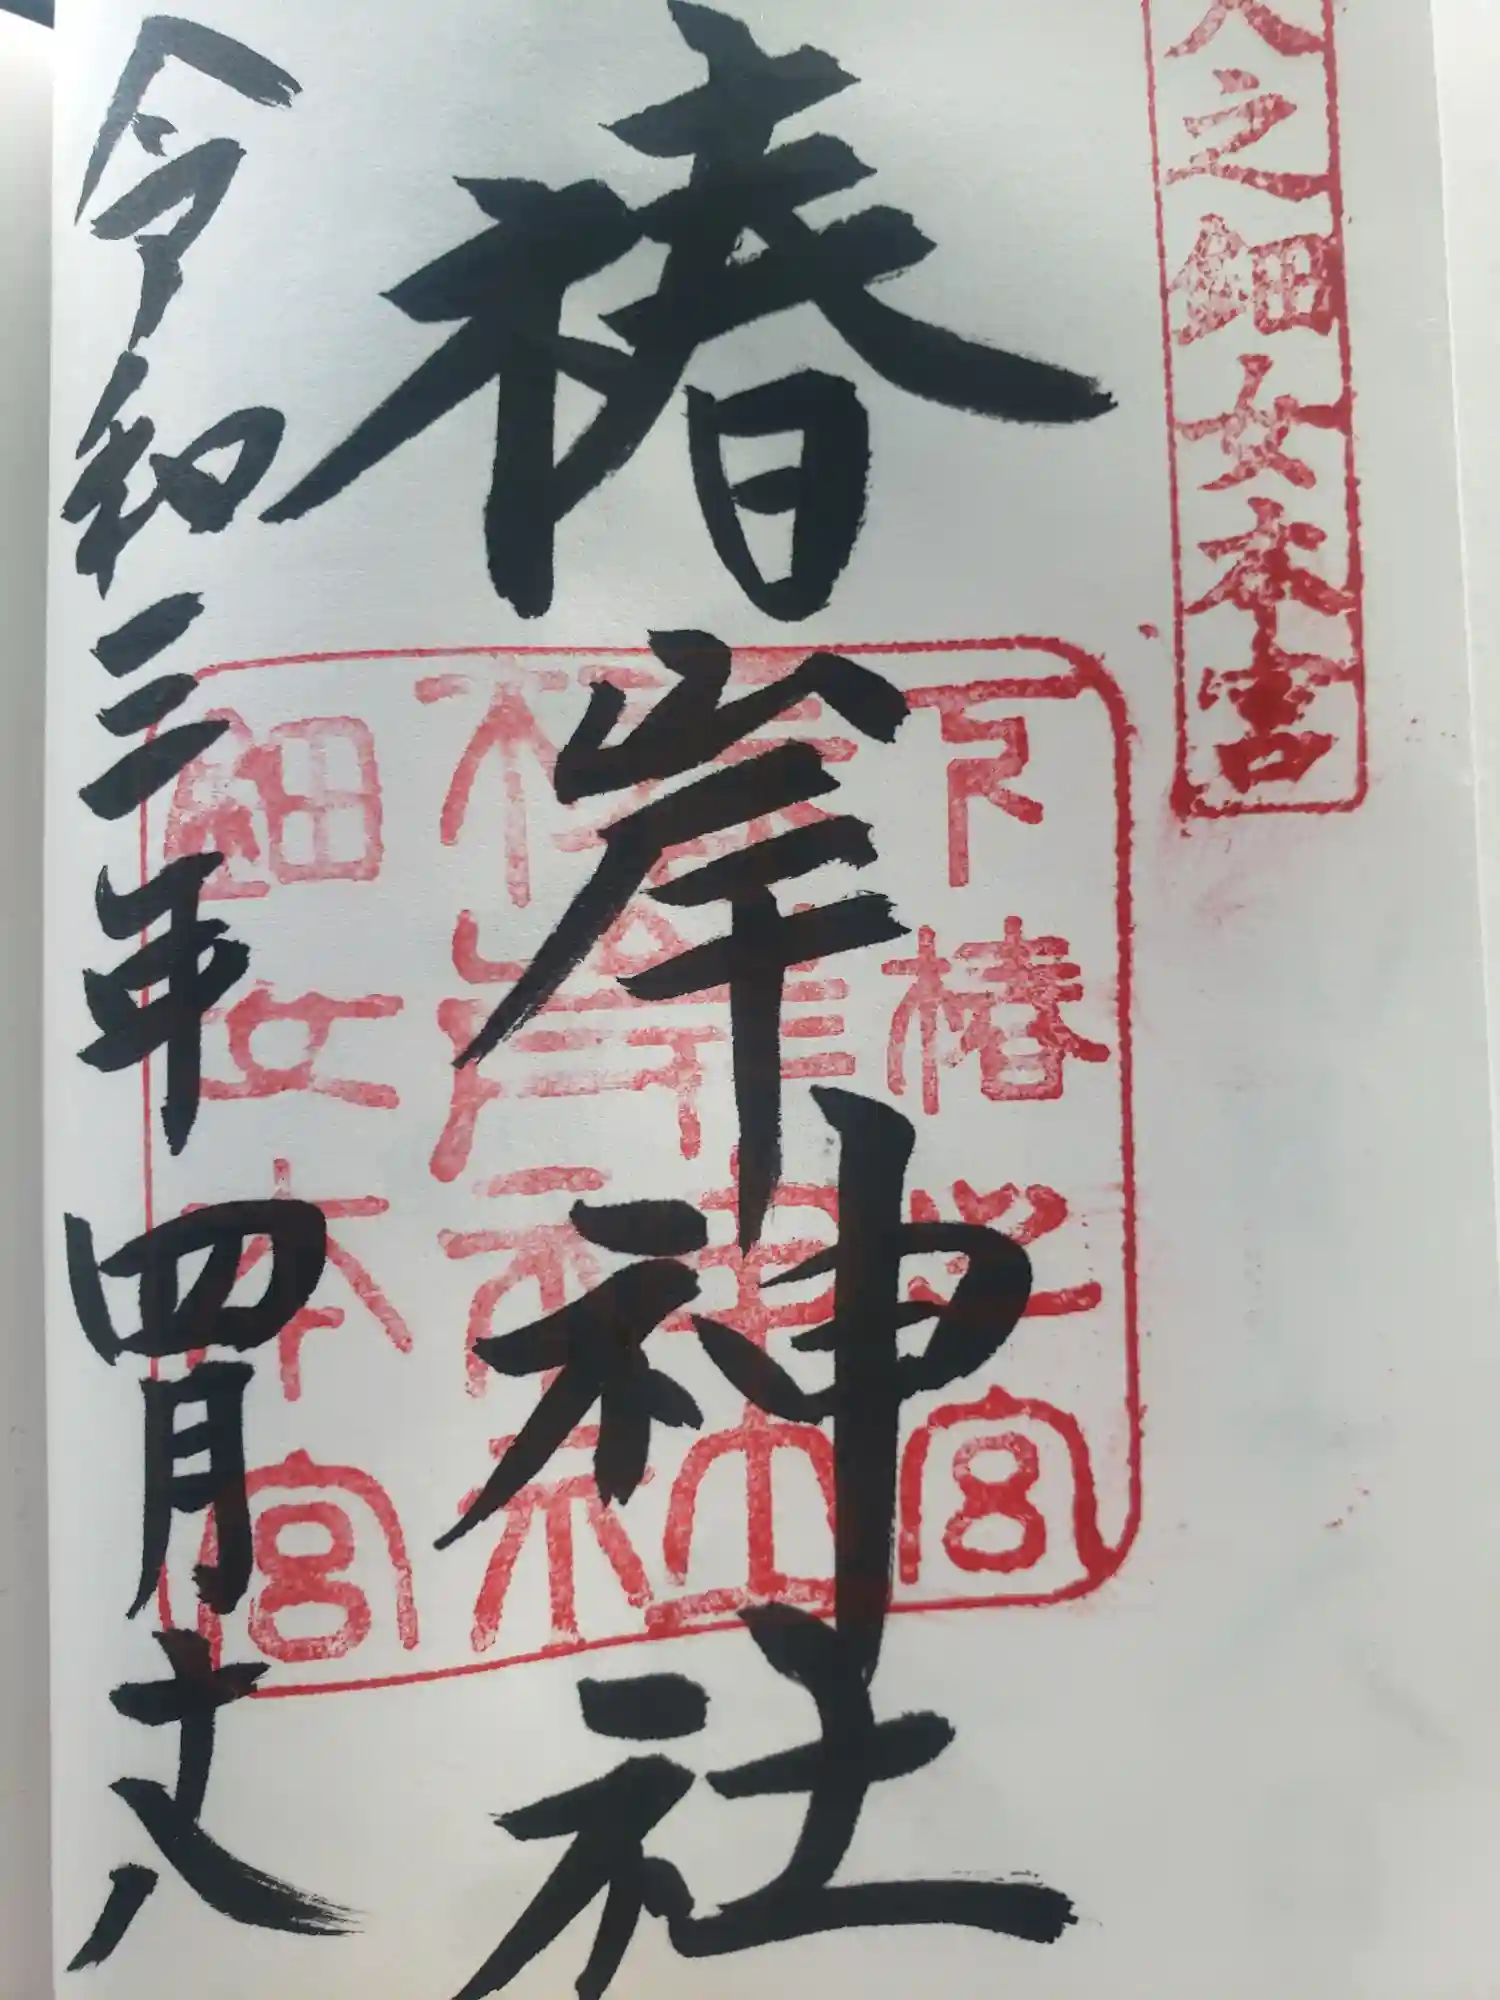 天之鈿女本宮
椿岸神社
下椿之宮
椿岸神社
鈿女本宮
令和三年四月十八